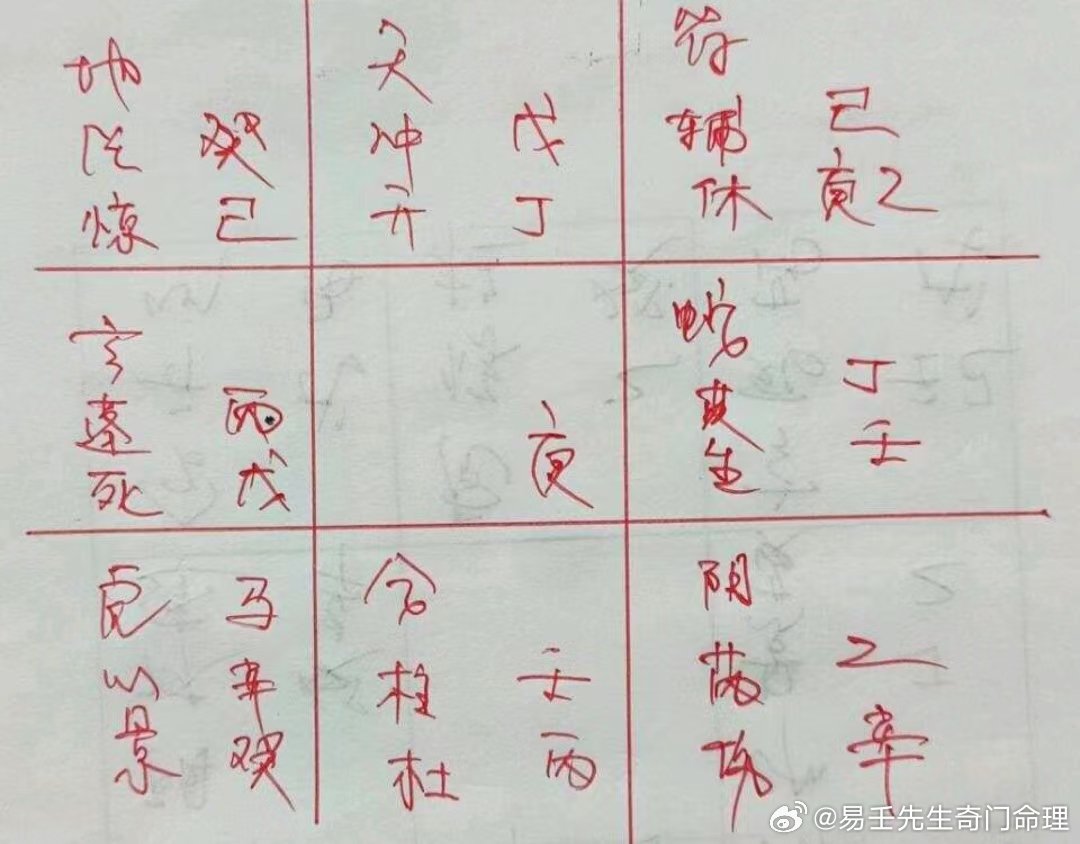 地
任 癸
惊 己
天
冲 戊
开 丁
符
辅 己
休 庚乙
玄
蓬 丙
死 戊
庚
蛇
英 丁
生 壬
虎 马
心 辛
景 癸
合
柱 壬
杜 丙
阴
芮 乙
伤 辛
@易壬先生奇门命理